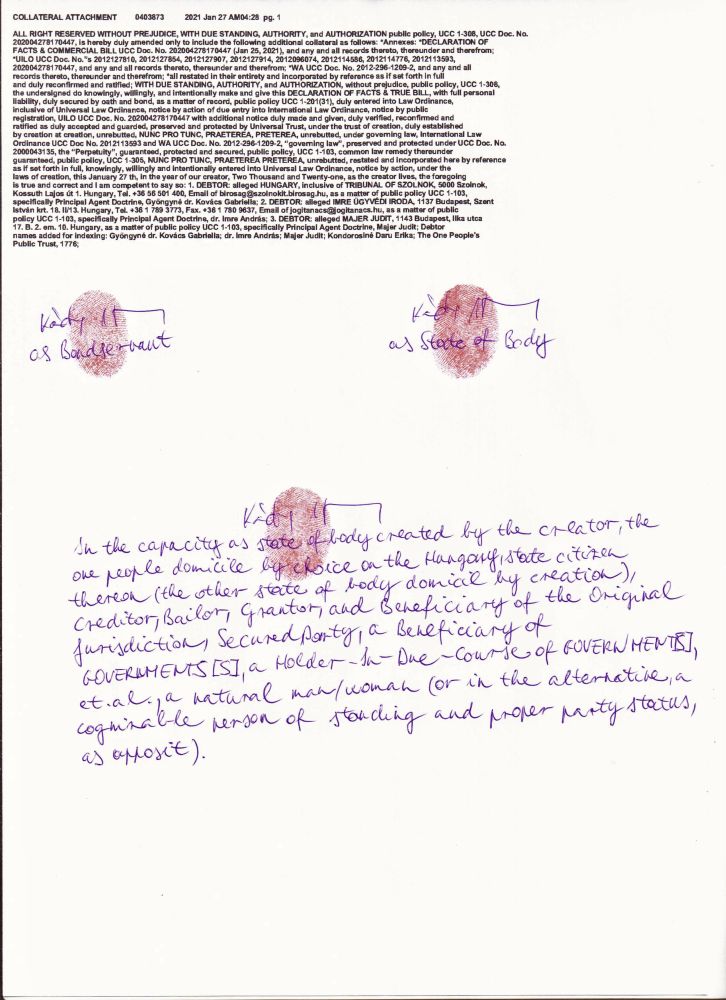 COLLATERAL ATTACHMENT 0403873 2021 Jan 27 AM04:28 pg. 1
ALL RIGHT RESERVED WITHOUT PREJUDICE, WITH DUE STANDING, AUTHORITY, and AUTHORIZATION public policy, UCC 1-308, UCC Doc. No.
202004278170447, is hereby duly amended only to include the following additional collateral as follows: "Annexes: "DECLARATION OF
FACTS & COMMERCIAL BILL UCC Doc. No. 202004278170447 (Jan 25, 2021), and any and all records thereto, thereunder and therefrom;
"UILO UCC Doc. No."s 2012127810, 2012127854, 2012127907, 2012127914, 2012096074, 2012114586, 2012114776, 2012113593,
202004278170447, and any and all records thereto, thereunder and therefrom; "WA UCC Doc. No. 2012-296-1209-2, and any and all
records thereto, thereunder and therefrom; "all restated in their entirety and incorporated by reference as if set forth in full
and duly reconfirmed and ratified; WITH DUE STANDING, AUTHORITY, and AUTHORIZATION, without prejudice, public policy, UCC 1-308,
the undersigned do knowingly, willingly, and intentionally make and give this DECLARATION OF FACTS & TRUE BILL, with full personal
liability, duly secured by oath and bond, as a matter of record, public policy UCC 1-201(31), duly entered into Law Ordinance,
inclusive of Universal Law Ordinance, notice by action of due entry into International Law Ordinance, notice by public
registration, UILO UCC Doc. No. 202004278170447 with additional notice duly made and given, duly verified, reconfirmed and
ratified as duly accepted and guarded, preserved and protected by Universal Trust, under the trust of creation, duly established
by creation at creation, unrebutted, NUNC PRO TUNC, PRAETEREA, PRETEREA, unrebutted, under governing law, International Law
Ordinance UCC Doc No. 2012113593 and WA UCC Doc. No. 2012-296-1209-2, "governing law", preserved and protected under UCC Doc. No.
2000043135, the "Perpetuity", guaranteed, protected and secured, public policy, UCC 1-103, common law remedy thereunder
guaranteed, public policy, UCC 1-305, NUNC PRO TUNC, PRAETEREA PRETEREA, unrebutted, restated and incorporated here by reference
as if set forth in full, knowingly, willingly and intentionally entered into Universal Law Ordinance, notice by action, under the
laws of creation, this January 27 th, in the year of our creator, Two Thousand and Twenty-one, as the creator lives, the foregoing
is true and correct and I am competent to say so: 1. DEBTOR: alleged HUNGARY, inclusive of TRIBUNAL OF SZOLNOK, 5000 Szolnok,
Kossuth Lajos út 1. Hungary, Tel. +36 56 501 400, Email of birosag@szolnokit.birosag.hu, as a matter of public policy UCC 1-103,
specifically Principal Agent Doctrine, Gyöngyné dr. Kovács Gabriella; 2. DEBTOR: alleged IMRE ÜGYVÉDI IRODA, 1137 Budapest, Szent
István krt. 18. II/13. Hungary, Tel. +36 1 789 3773, Fax. +36 1 780 9637, Email of jogitanacs@jogitanacs.hu, as a matter of public
policy UCC 1-103, specifically Principal Agent Doctrine, dr. Imre András; 3. DEBTOR: alleged MAJER JUDIT, 1143 Budapest, Ilka utca
17. B. 2. em. 10. Hungary, as a matter of public policy UCC 1-103, specifically Principal Agent Doctrine, Majer Judit; Debtor
names added for indexing: Gyöngyné dr. Kovács Gabriella; dr. Imre András; Majer Judit; Kondorosiné Daru Erika; The One People's
Public Trust, 1776;
as Bondservant
as State of Body
In the capacity as state of body created by the creator, the
one people domicile by choice on the Hungary, state citizen
thereon (the other state of body domicil by creation),
Creditor, Bailor, Grantor, and Beneficiary of the Original
Jurisdiction, Secured Party, a Beneficiary of
GOVERNMENTS[S], a Holder-In-Due-Course of GOVERNMENT[S],
et.al., a natural man/woman (or in the alternative, a
cogminable person of standing and proper party status,
as apposit).